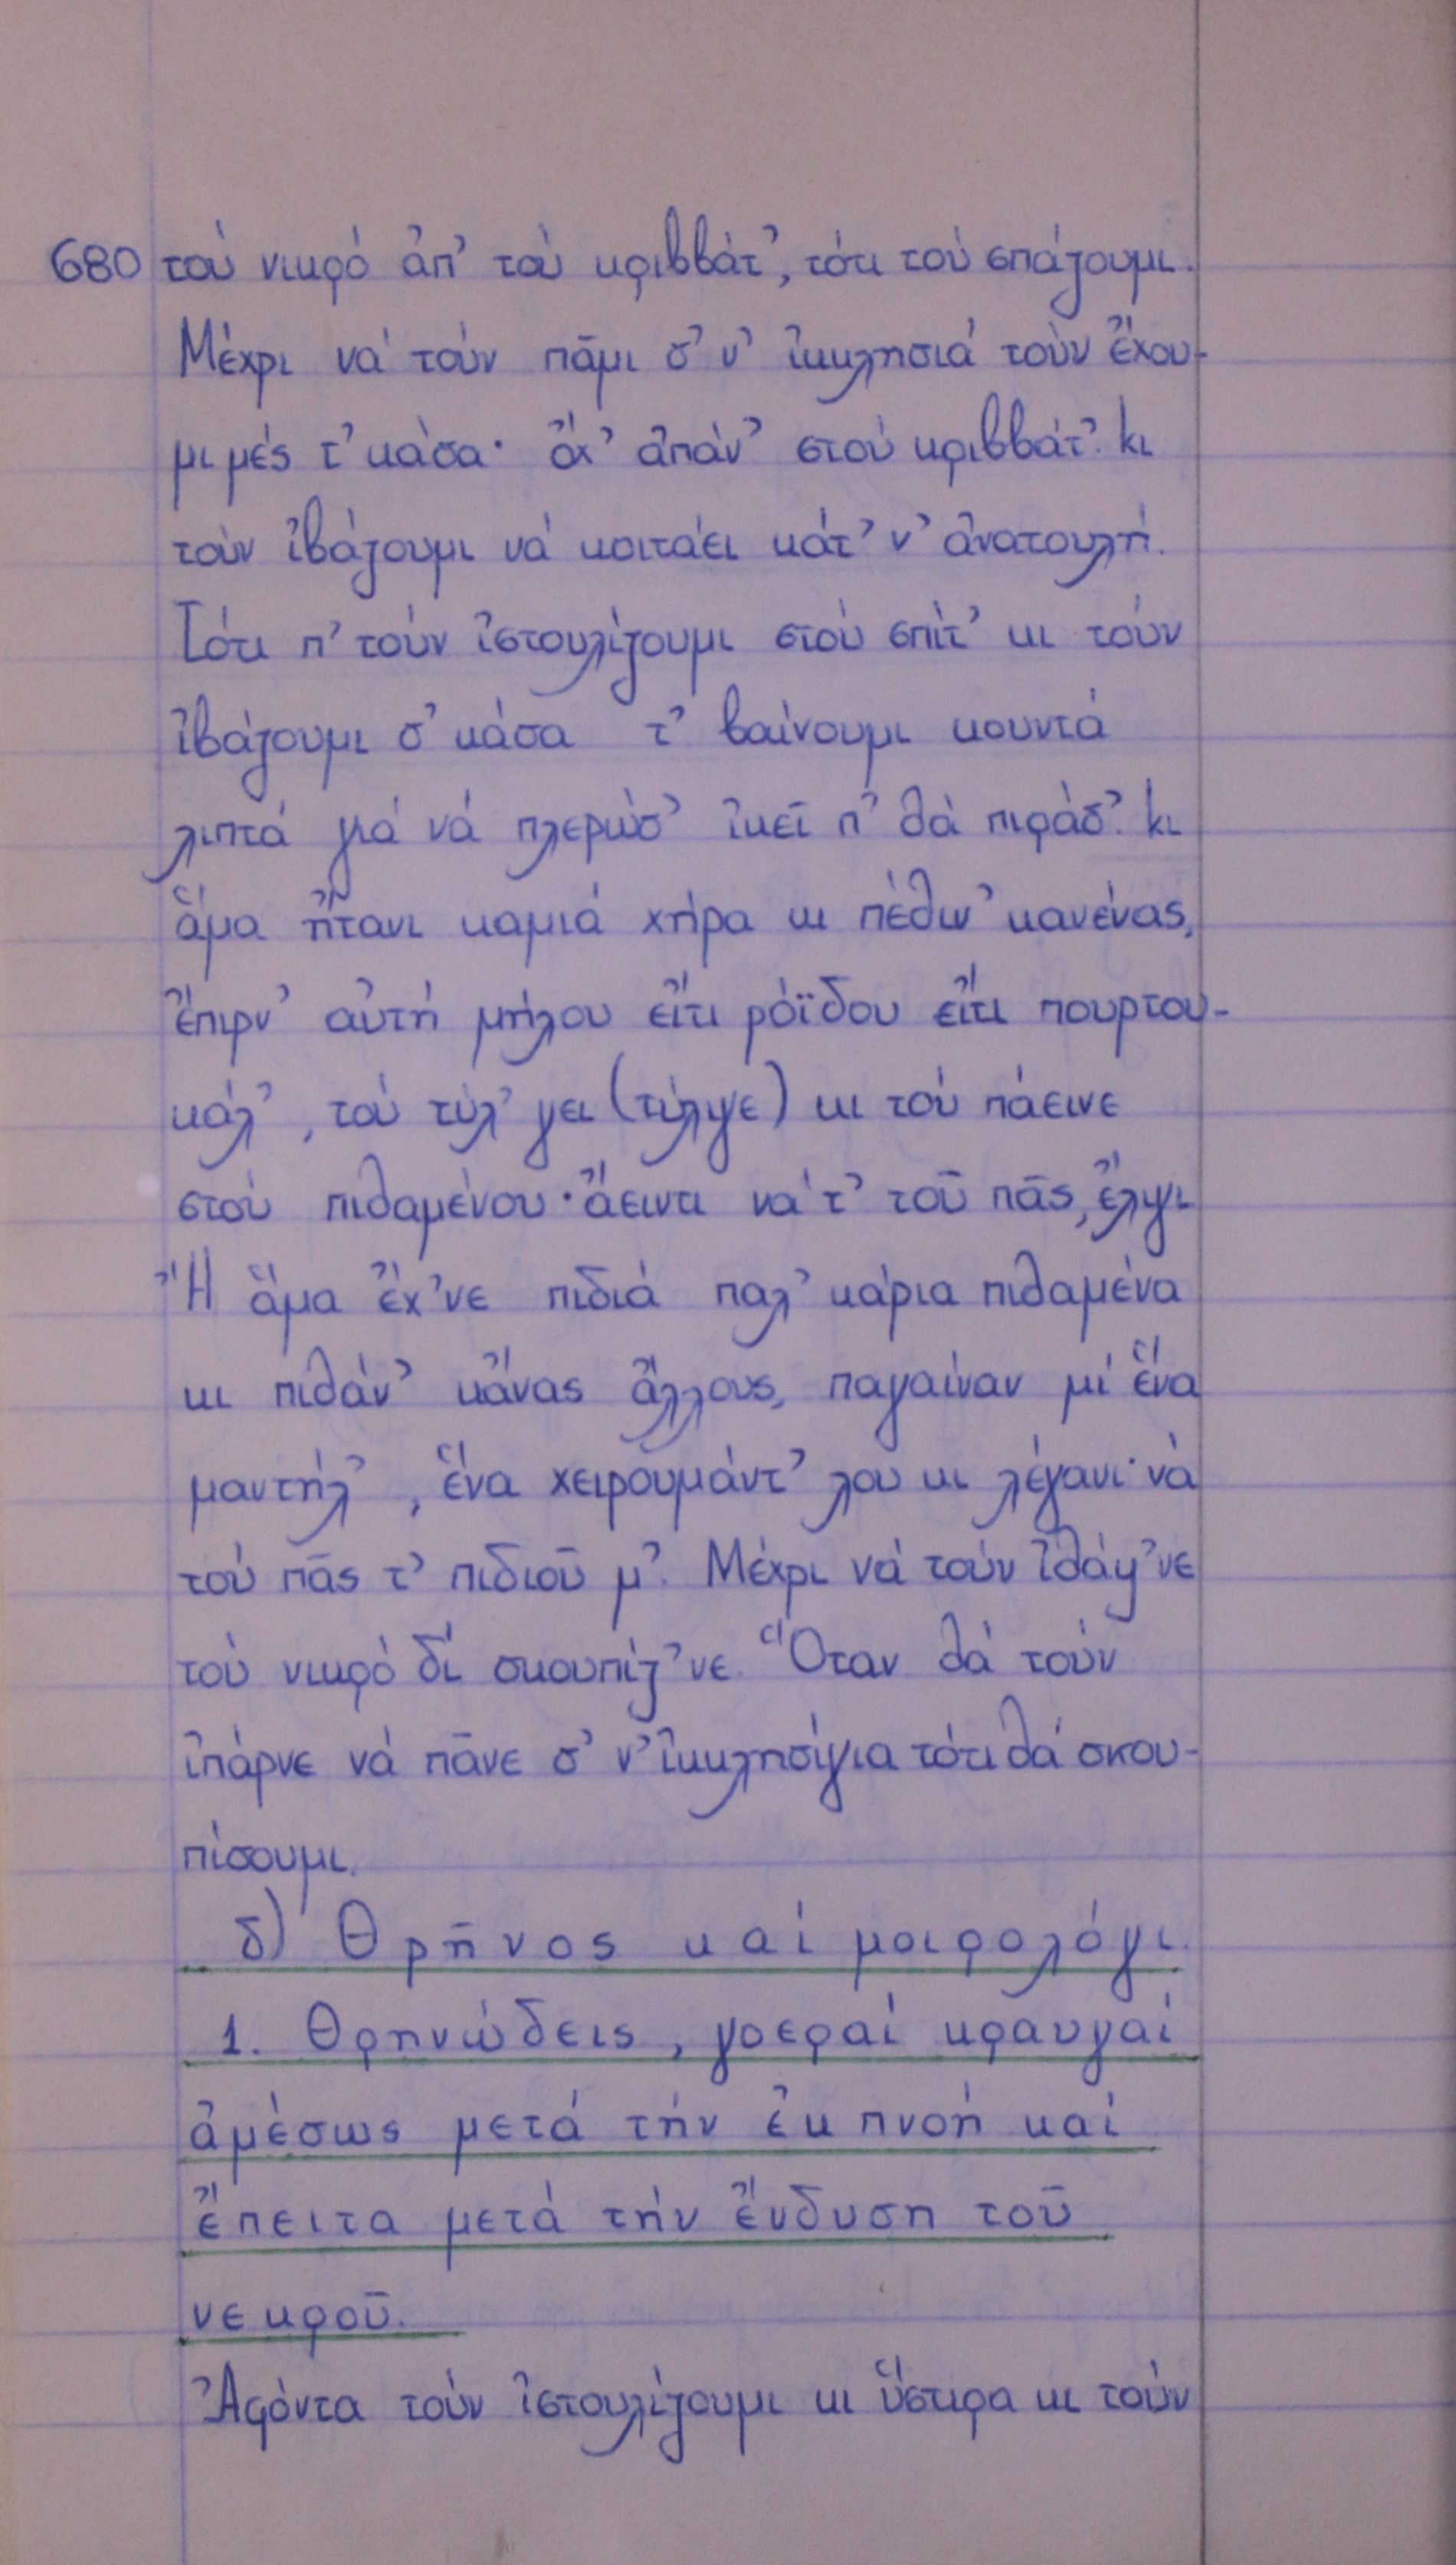 680 τού νικρό ἀπ' τού κριββάτ', τότι τού σπάζουμι.
Μέχρι νά τούν πᾶμι σ' ν' ἰκκλησιά τούν ἔχου-
μι μές τ' κάσα· ὄχ' ἀπάν' στού κριββάτ'. Κι
τούν ἰβάζουμι νά κοιτάει κάτ' ν' ἀνατουλή.
Τότι π' τούν ἰστουλίζουμι στού σπίτ' κι τούν
ἰβάζουμι σ' κάσα τ' βαίνουμι κουντά
λιπτά γιά νά πλερώσ' ἰκεῖ π' θά πιράσ'. Κι
ἅμα ἤτανι καμιά χήρα κι πέθιν' κανένας,
ἔπιρν' αὐτή μήλου εἴτι ρόϊδου εἴτι πουρτου-
κάλ', τού τύλ' γει (τύλιγε) κι τού πάεινε
στού πιθαμένου· ἄειντι νά τ' τοῦ πᾶς, ἔλιγι
Ἤ ἅμα ἔχ'νε πιδιά παλ' κάρια πιθαμένα
κι πιθάν' κἄνας ἄλλους, παγαίναν μί ἕνα
μαντήλ', ἕνα χειρουμάντ' λου κι λέγανι· νά
τού πᾶς τ' πιδιοῦ μ'. Μέχρι νά τούν ἰθάψ'νε
τού νικρό δί σκουπίζ'νε. Ὅταν θά τούν
ἰπάρνε νά πᾶνε σ' ν' ἰκκλησίγια τότι θά σκου-
πίσουμι.
δ) Θρῆνος καί μοιρολόγι.
1. Θρηνώδεις, γοεραί κραυγαί
ἀμέσως μετά τήν ἐκπνοή καί
ἔπειτα μετά τήν ἔνδυση τοῦ
νεκροῦ.
Ἀφόντα τούν ἰστουλίζουμι κι ὕστιρα κι τούν